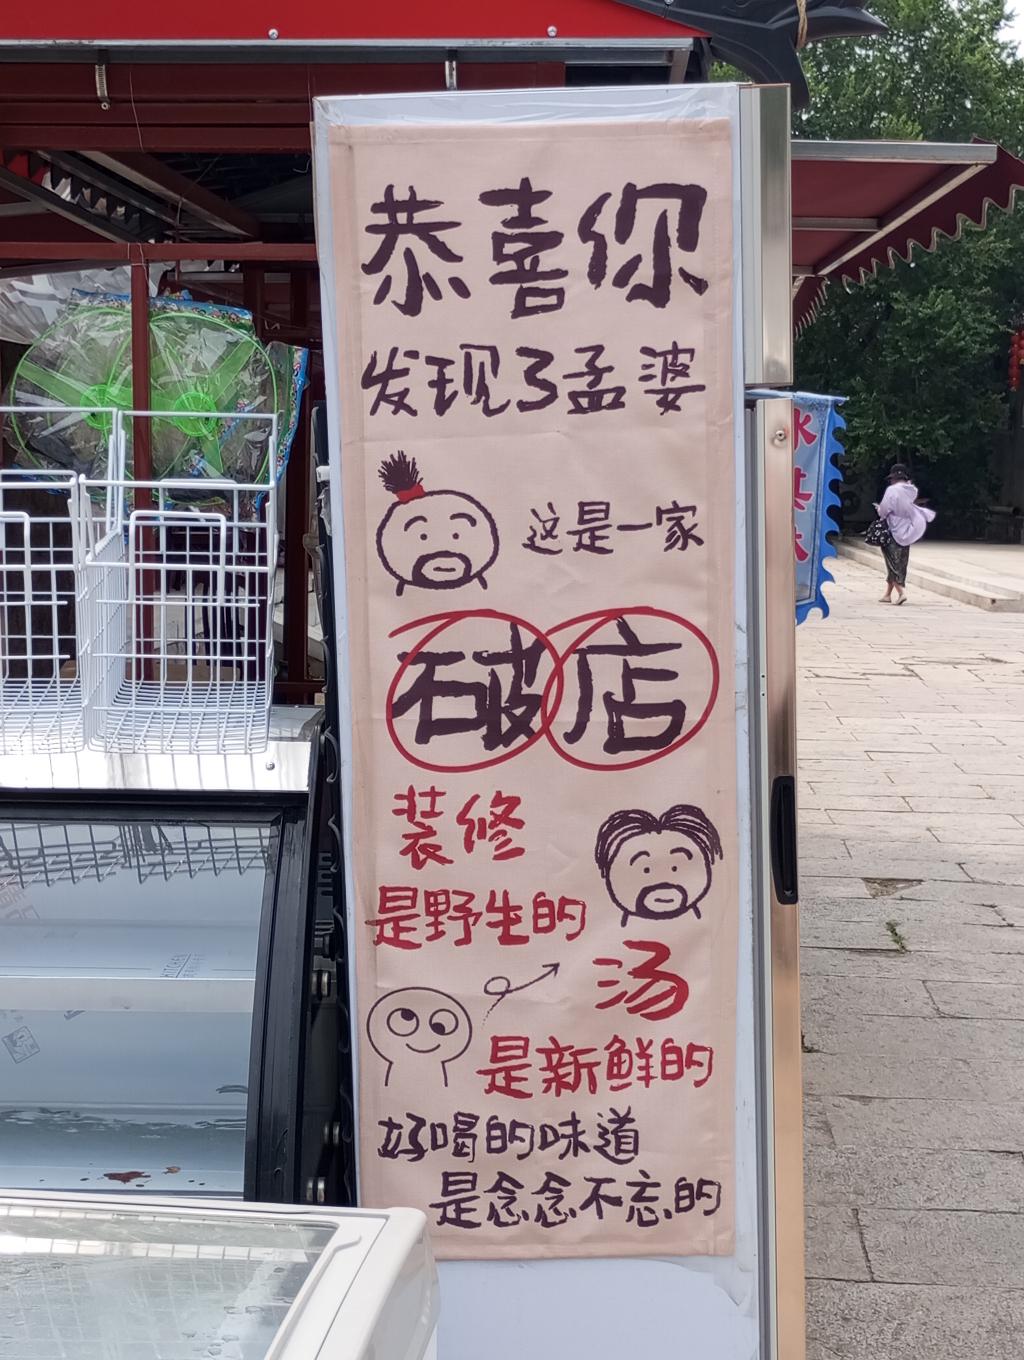 恭喜你
发现了孟婆
这是一家
破店
装修
是野生的
汤
是新鲜的
好喝的味道
是念念不忘的
冰
其